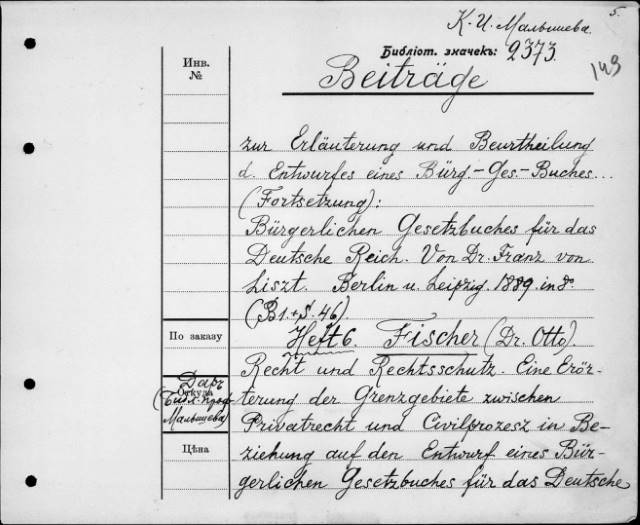 5.
К. И. Малышева.
Библіот. значекъ: 2373.
149
Beiträge
Инв.
№
zur Erläuterung und Beurtheilung
d. Entwurfes eines Bürg.-Ges.-Buches...
(Fortsetzung):
Bürgerlichen Gesetzbuches für das
Deutsche Reich. Von Dr. Franz von
Liszt. Berlin u. Leipzig. 1889. in 8°.
(B1.+S. 46).
По заказу
Heft 6. Fischer (Dr. Otto).
Recht und Rechtsschutz. Eine Erör-
Даръ
Откуда
(Библ. проф.
Малышева)
terung der Grenzgebiete zwischen
Privatrecht und Civilprozesz in Be-
Цѣна
ziehung auf den Entwurf eines Bür-
gerlichen Gesetzbuches für das Deutsche